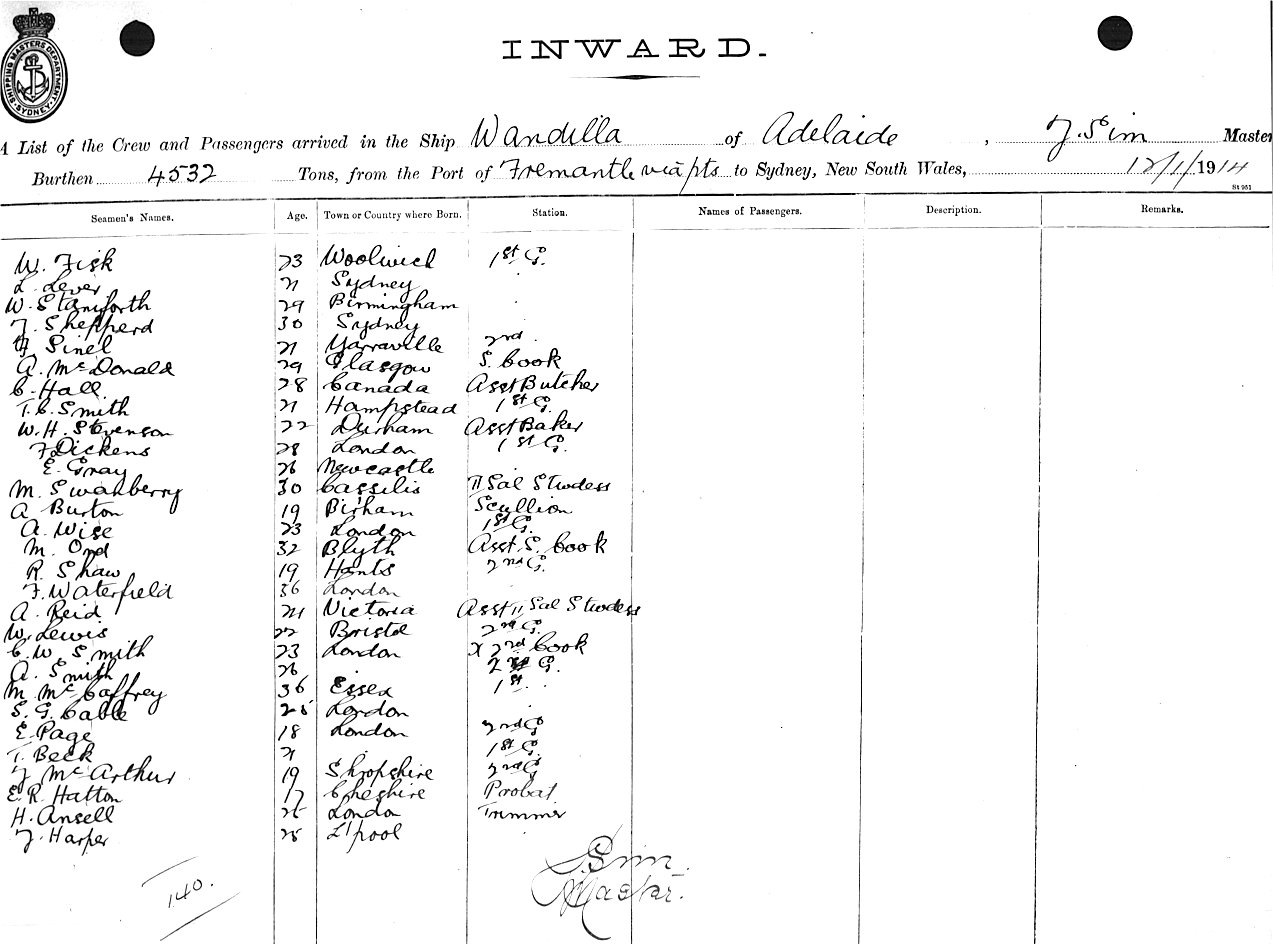 SHIPPING MASTERS DEPARTMENT
SYDNEY
INWARD.
A List of the Crew and Passengers arrived in the Ship Wandilla of Adelaide, J. Sim Master
Burthen 4532 Tons, from the Port of Fremantle via pts to Sydney, New South Wales, 12/1/1914
St 951
Seamen's Names. Age. Town or Country where Born. Station. Names of Passengers. Description. Remarks.
W. Fisk 23 Woolwich 1st G.
L. Lever 21 Sydney
W. Staniforth 29 Birmingham
J. Shepperd 30 Sydney
Sinel 21 Yarraville 2nd
A. McDonald 29 Glasgow S. Cook
C. Hall 28 Canada Asst Butcher
T. C. Smith 21 Hampstead 1st G.
W. H. Stevenson 22 Durham Asst Baker
F Dickens 28 London 1st G.
E. Gray 26 Newcastle
M. Swanberry 30 Cassilis II Sal Stwdess
A Burton 19 Birham Scullion
A. Wise 23 London 1st G.
M. Ord 32 Blyth Asst. S. Cook
R. Shaw 19 Hants 2nd G.
F. Waterfield 36 London
A. Reid 24 Victoria Asst II Sal Stwdess
W. Lewis 22 Bristol 2nd G.
C. W. Smith 23 London X 2nd Cook
A. Smith 26 G.
M. McCaffrey 36 Essex 1st
S. G. Cable 25 London
E. Page 18 London 2nd G
T. Beck 21 1st G.
J McArthur 19 Shropshire 2nd G
E. R. Hatton 17 Cheshire Probat
H. Ansell 25 London Trimmer
J. Harper 28 L'pool
J. Sim
Master.
140.